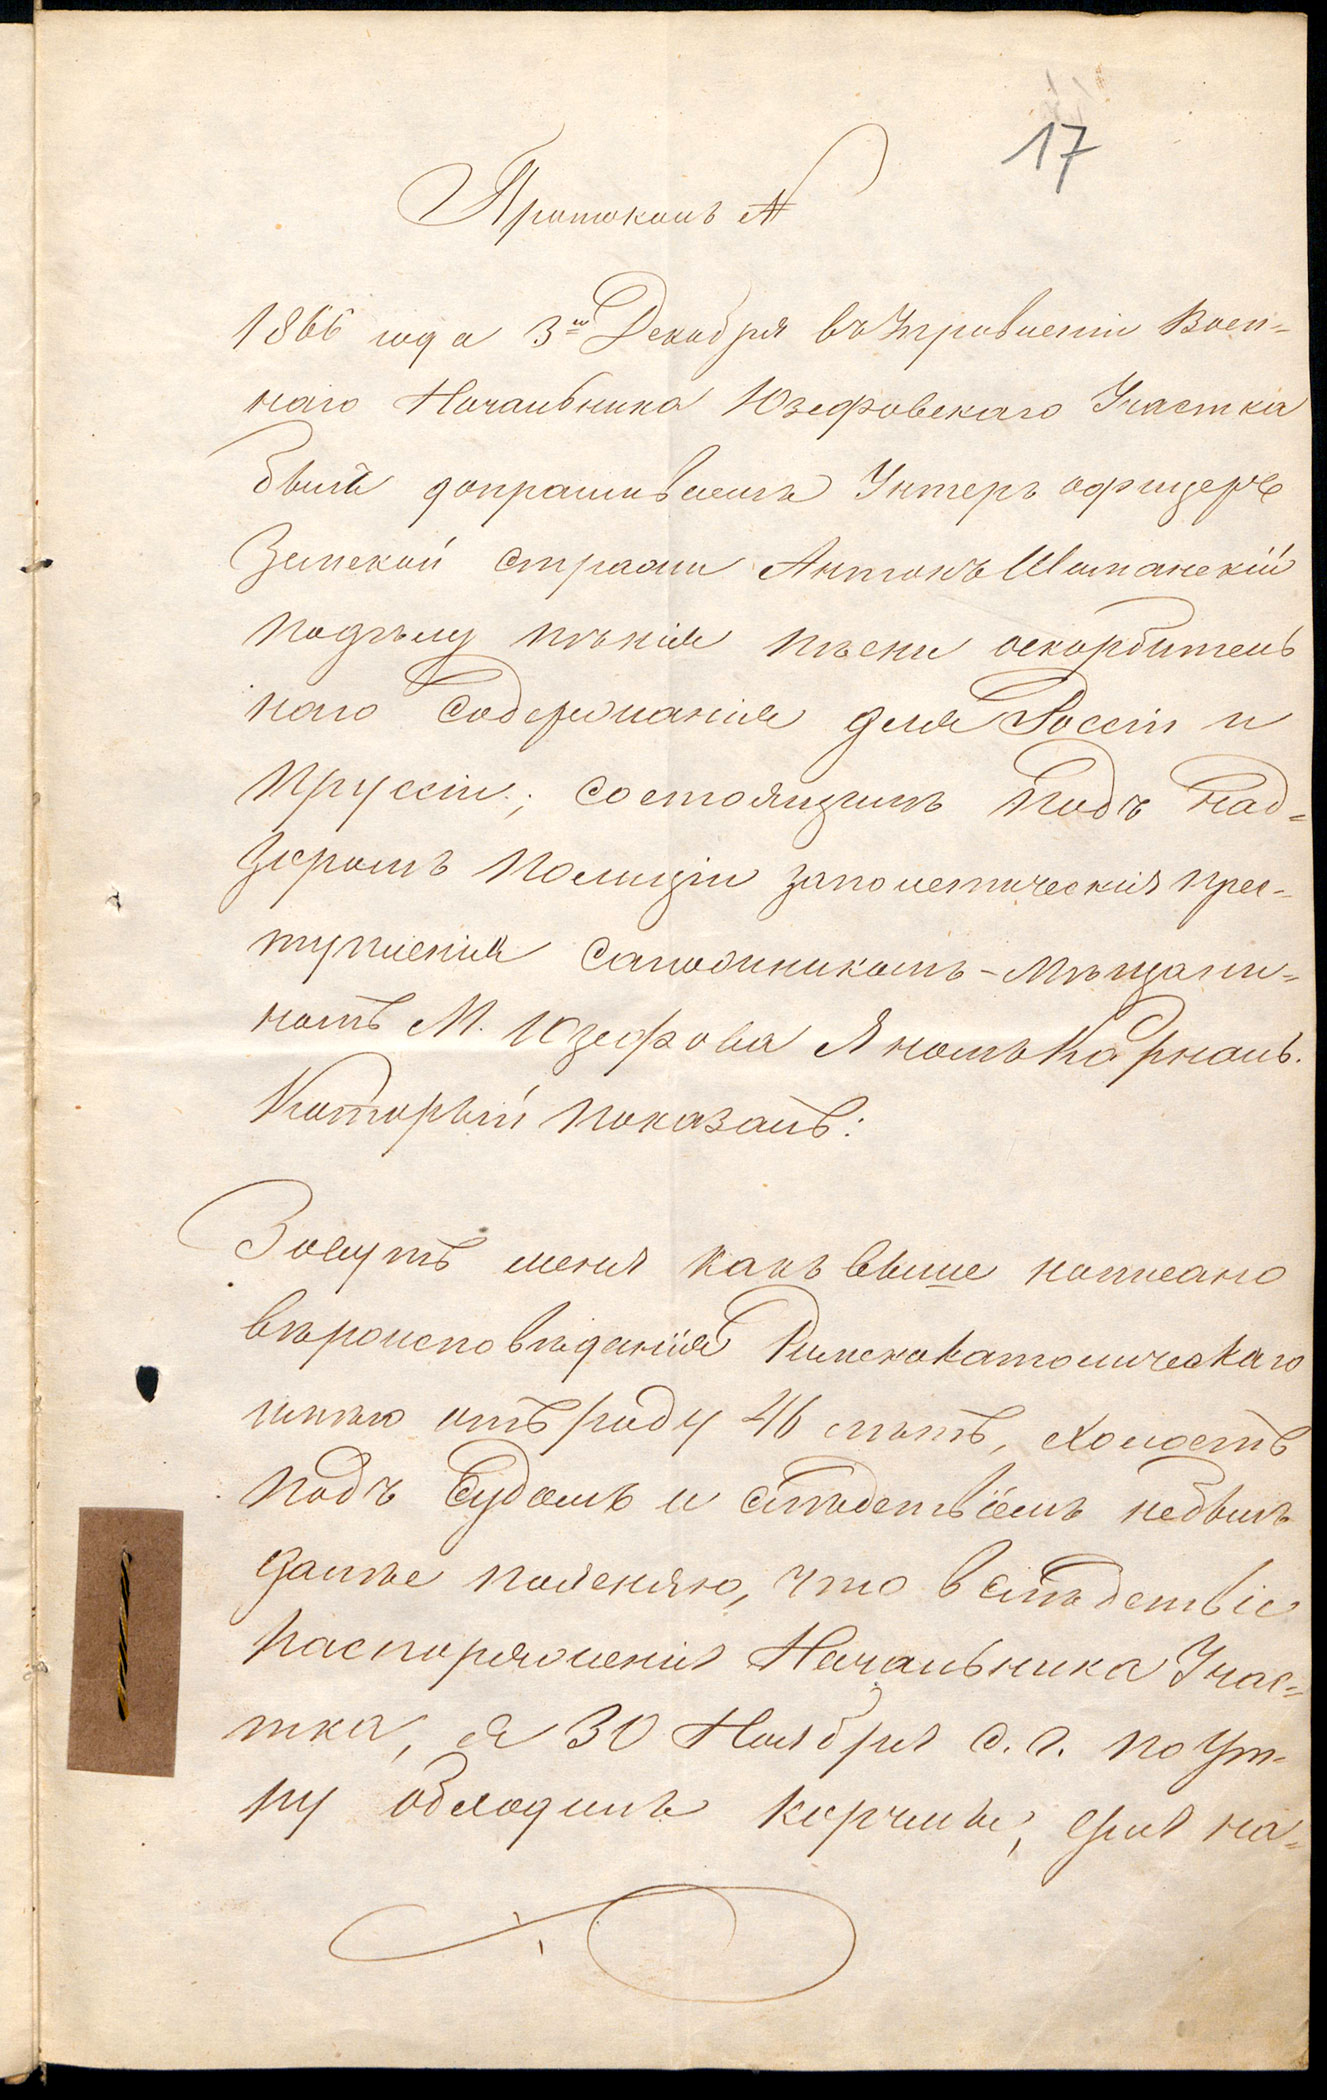 17
Протоколъ №
1866 года 3го Декабря въ Управленіи Воен-
наго Начальника Юзефовскаго Участка
былъ допрашиваемъ Унтеръ офицеръ
Земской стражи Антонъ Шиманскій
подѣлу пѣнія пѣсни оскорбитель
наго Содержанія для Россіи и
Пруссіи; состоящимъ подъ Над-
зоромъ Полиціи заполетическія прес-
тупленія Сапожникомъ-Мѣщани-
номъ М. Юзефова Яномъ Карналь.
Который показалъ:
Зовутъ меня какъ выше написано
вѣроисповѣданія Римскокатолическаго
имѣю отъ роду 46 лѣтъ, холостъ
подъ Судомъ и слѣдствіемъ небылъ
далѣе поясняю, что вслѣдствіе
Распоряженія Начальника Учас-
тка, я 30 Ноября с. г. по Ут-
ру обходилъ корчмы, для на-